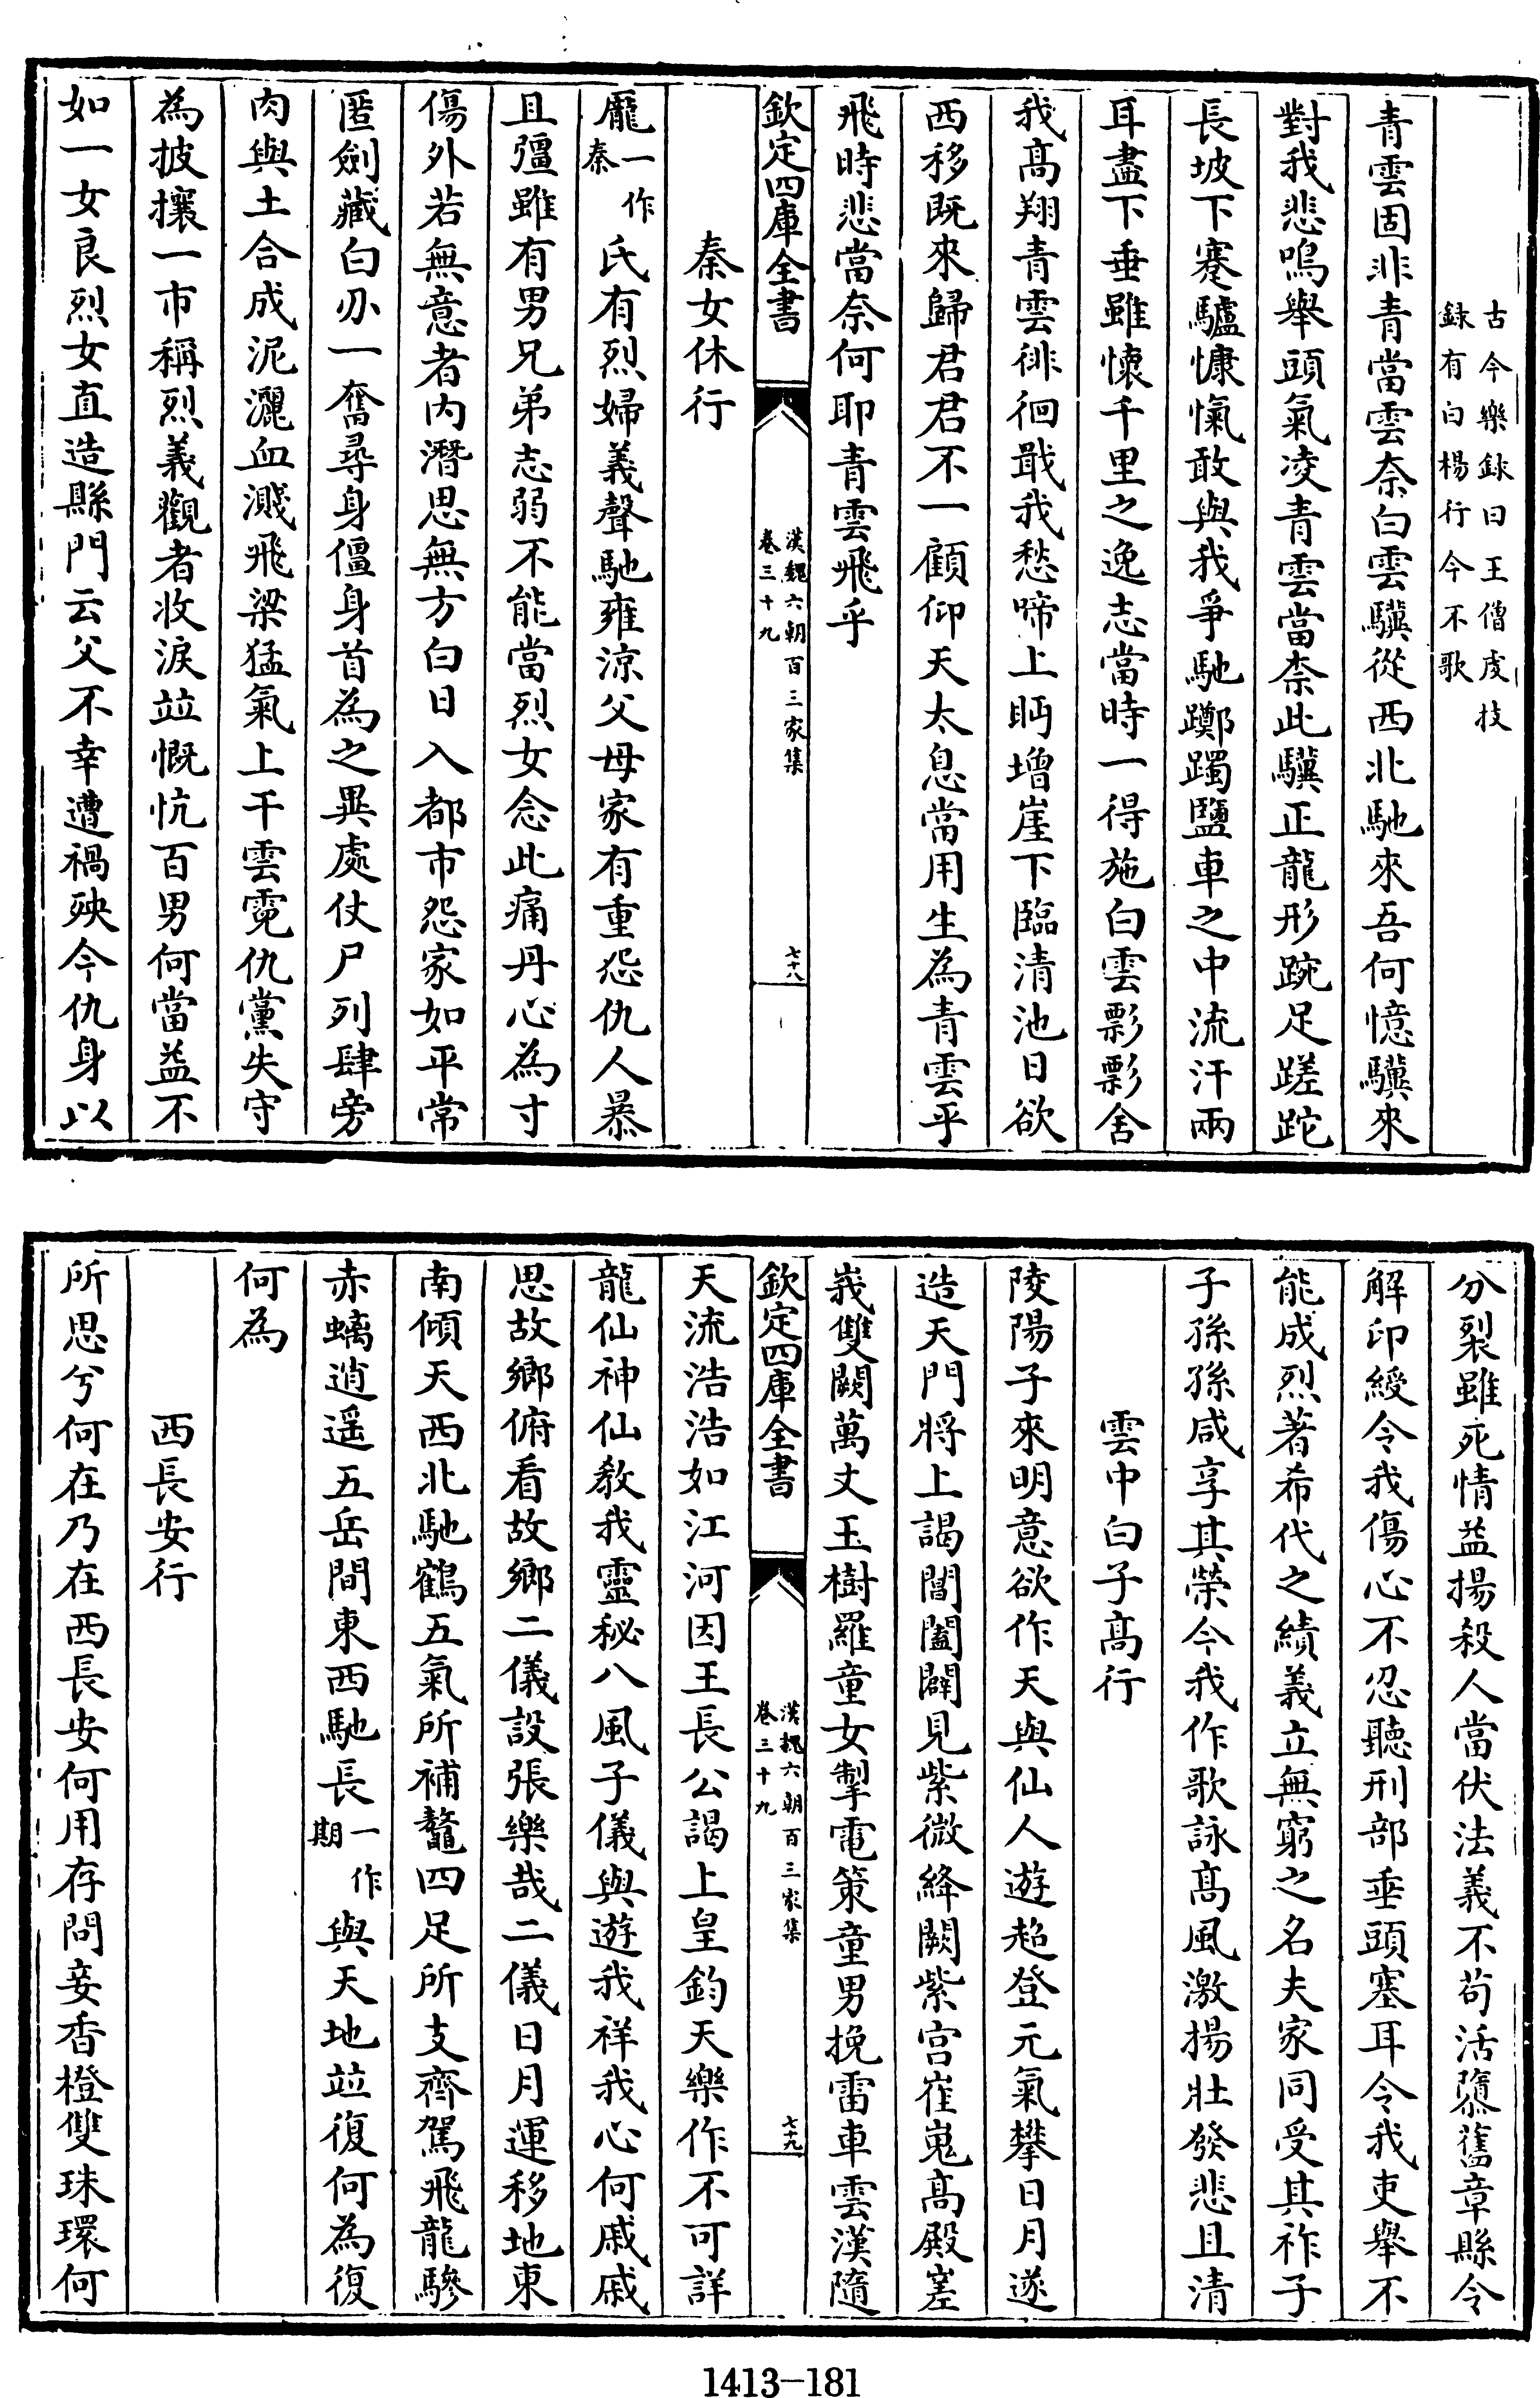 古今樂録曰王僧䖍技
録有白楊行今不歌
青雲固非青當雲奈白雲驥從西北馳來吾何憶驥來
對我悲鳴舉頭氣凌青雲當柰此驥正龍形踠足蹉跎
長坡下蹇驢慷慨敢與我爭馳躑躅鹽車之中流汗兩
耳盡下垂雖懷千里之逸志當時一得施白雲影影舍
我高翔青雲徘徊戢我愁啼上眄增崖下臨清池日欲
西移既來歸君君不一顧仰天太息當用生為青雲乎
飛時悲當奈何耶青雲飛乎
欽定四庫全書
漢魏六朝百三家集
卷三十九
七十八
秦女休行
龎一作秦氏有烈婦義聲馳雍涼父母家有重怨仇人暴
且彊雖有男兄弟志弱不能當烈女念此痛丹心為寸
傷外若無意者内潛思無方白日入都市怨家如平常
匿劍藏白刃一奮尋身僵身首為之異處伏尸列肆旁
肉與土合成泥灑血濺飛梁猛氣上干雲霓仇黨失守
為披攘一市稱烈義觀者收淚竝慨忼百男何當益不
如一女良烈女直造縣門云父不幸遭禍殃今仇身以
分裂雖死情益揚殺人當伏法義不苟活隳舊章縣令
解印綬令我傷心不忍聽刑部垂頭塞耳令我吏舉不
能成烈著希代之績義立無窮之名夫家同受其祚子
子孫孫咸享其榮今我作歌詠高風激揚壯發悲且清
雲中白子高行
陵陽子來明意欲作天與仙人遊超登元氣攀日月遂
造天門將上謁閶闔闢見紫微絳闕紫宫崔嵬高殿嵳
峩雙闕萬丈玉樹羅童女掣電策童男挽雷車雲漢隨
欽定四庫全書
漢魏六朝百三家集
卷三十九
七十九
天流浩浩如江河因王長公謁上皇鈞天樂作不可詳
龍仙神仙教我靈秘八風子儀與遊我祥我心何戚戚
思故鄉俯看故鄉二儀設張樂哉二儀日月運移地東
南傾天西北馳鶴五氣所補鼇四足所支齊駕飛龍驂
赤螭逍遥五岳間東西馳長一作期與天地竝復何為復
何為
西長安行
所思兮何在乃在西長安何用存問妾香橙雙珠環何
1413-181